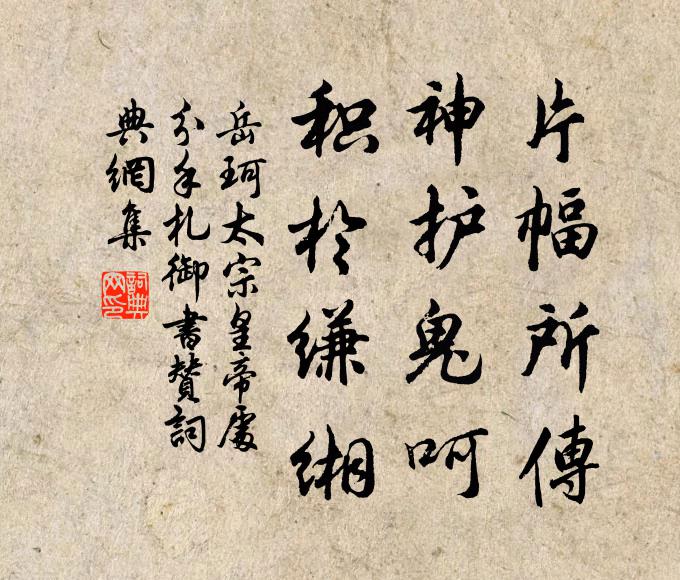 片幅所傳
神护鬼呵
积於缣缃
岳珂太宗皇帝處
分手札御書贊詞
典網集
詞典網印